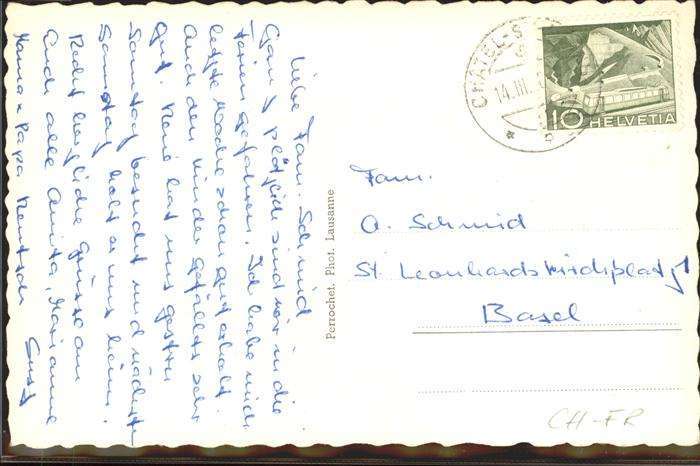 Liebe Fam. Schmid
Ganz plötzlich sind wir in die
Ferien gefahren. Ich habe mich
letzte Woche schon gut erholt.
Auch den Kinder gefällts sehr
gut. René hat uns gestern
Sonntag besucht und nächsten
Samstag holt er uns heim.
Recht herzliche Grüsse an
Euch alle Anita, Marianne
Mama & Papa Rentsch
Perrochet. Phot. Lausanne
CHÂTEL-S
14.III.
10 HELVETIA
Fam.
A. Schmid
St. Leonhardskirchplatz 1
Basel
CH-FR